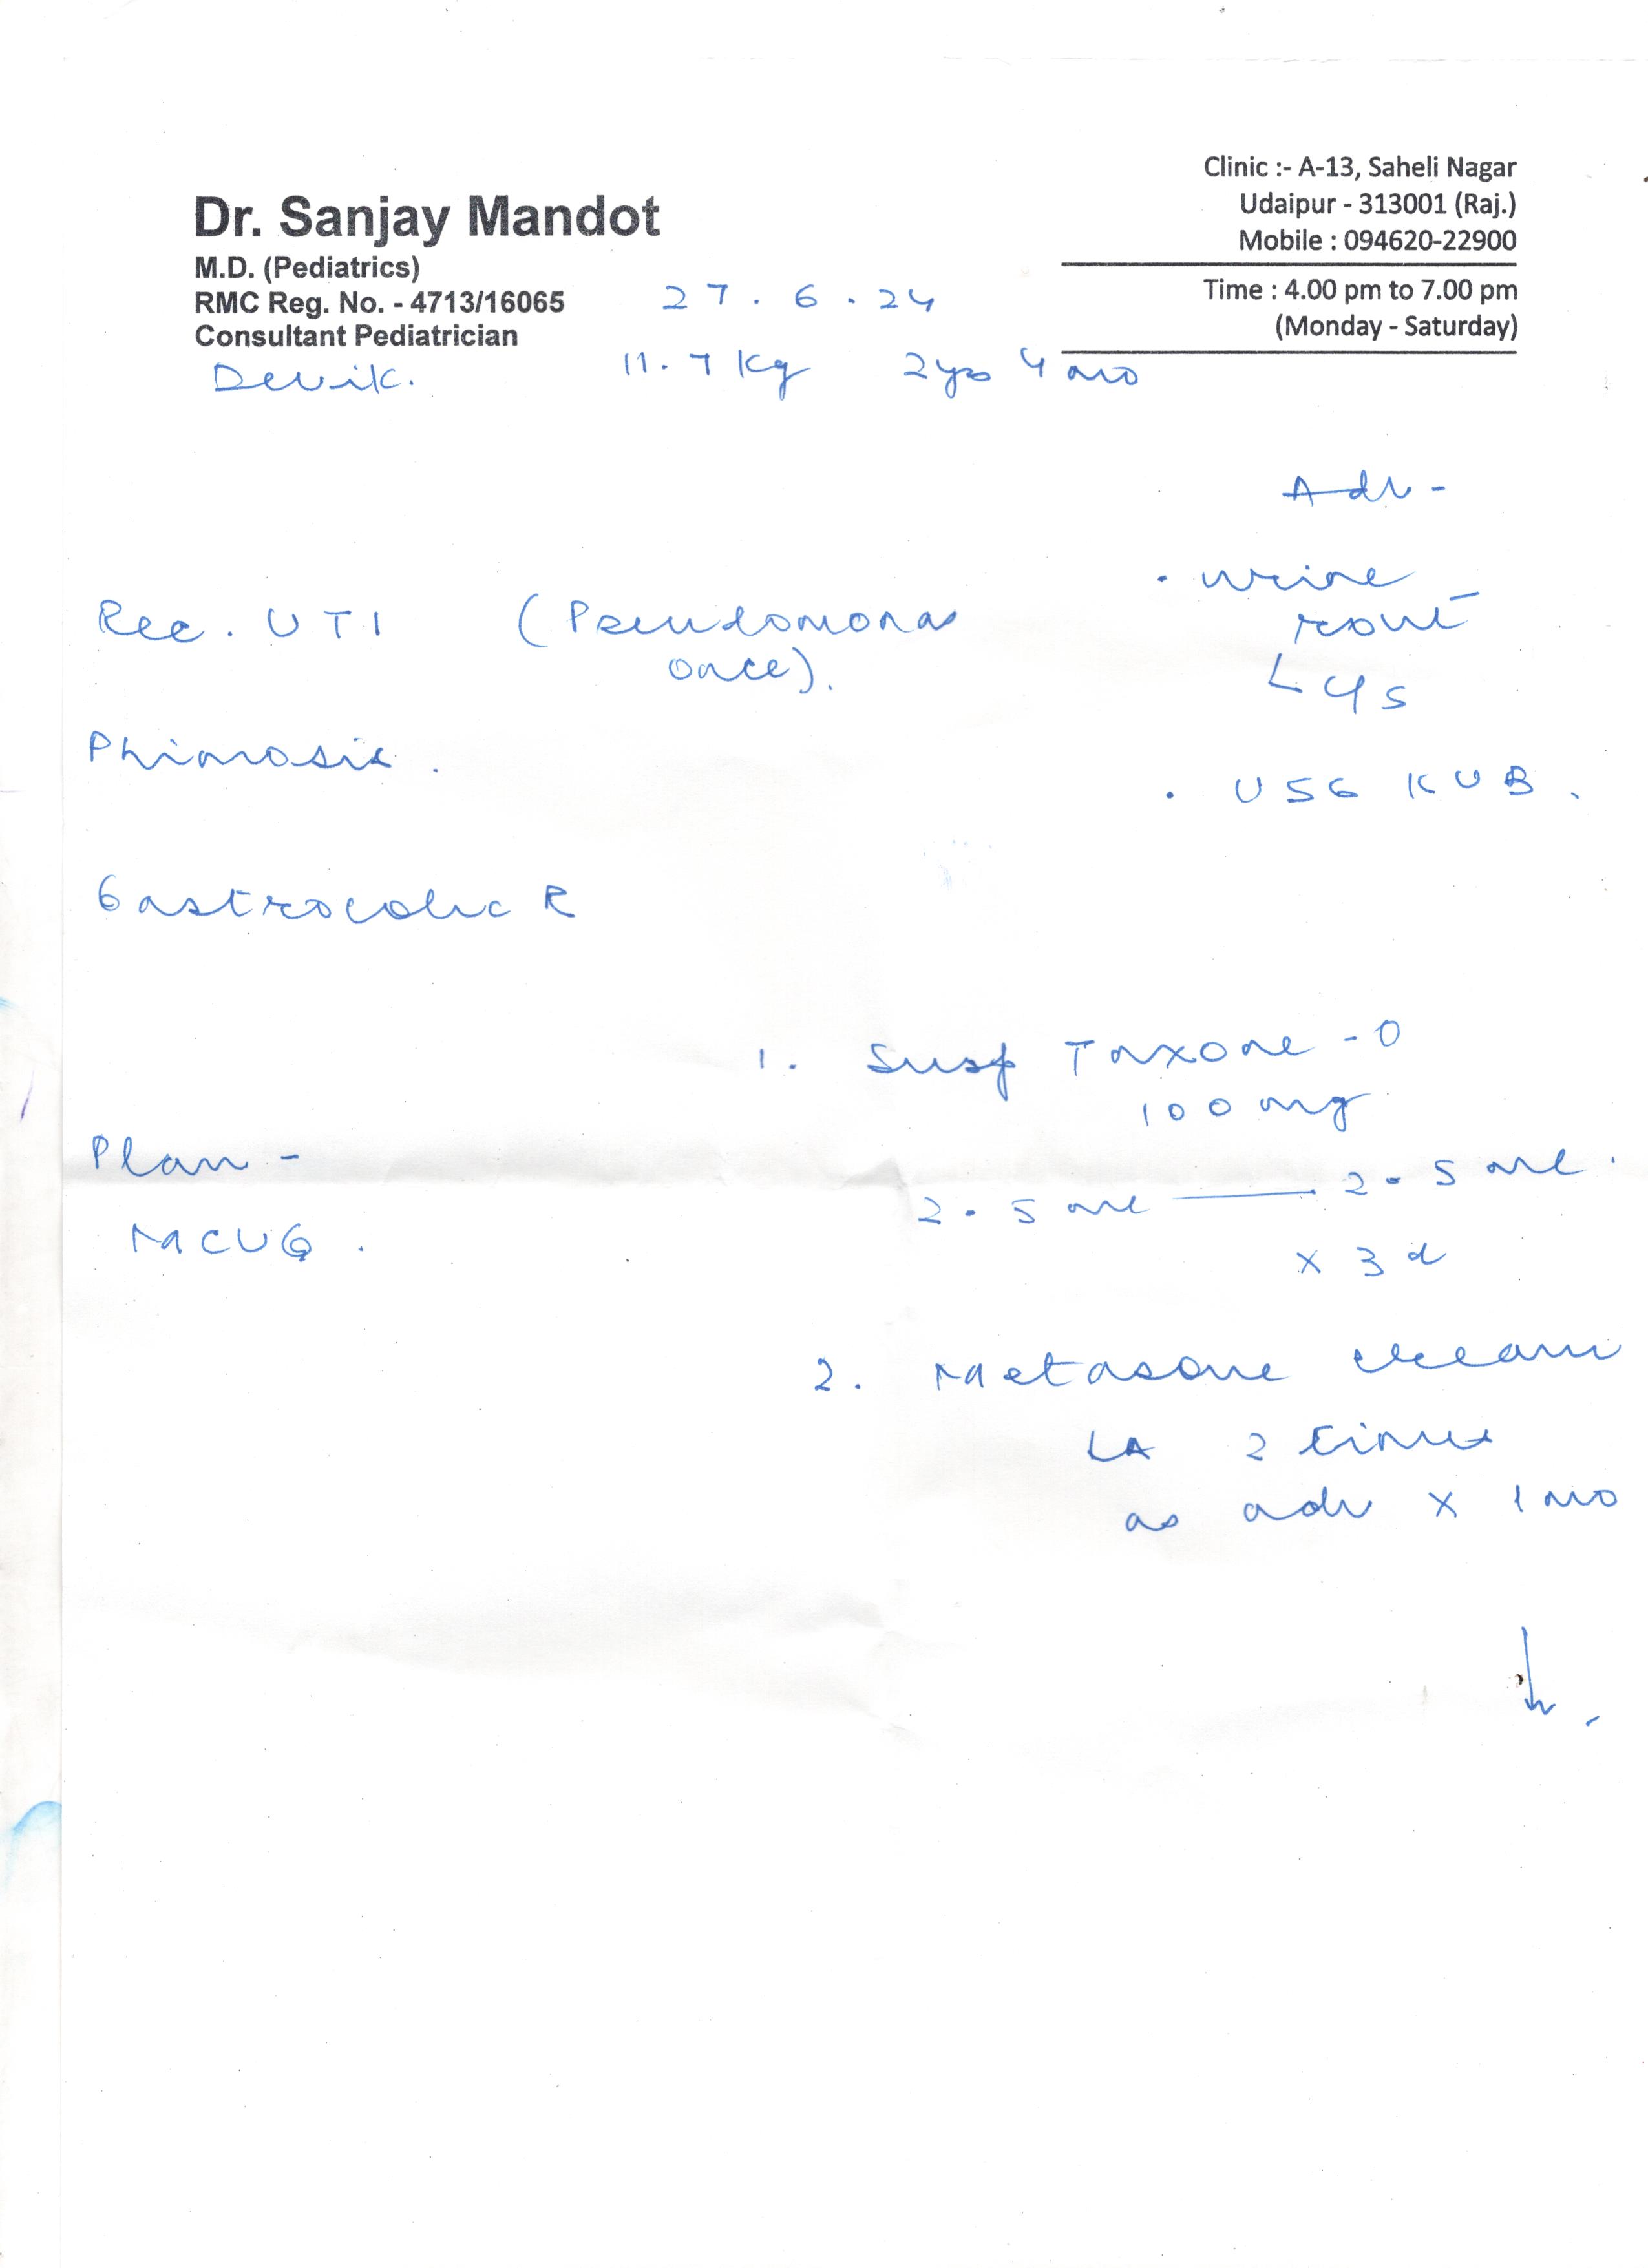 Dr. Sanjay Mandot
M.D. (Pediatrics)
RMC Reg. No. - 4713/16065
Consultant Pediatrician
Clinic :- A-13, Saheli Nagar
Udaipur - 313001 (Raj.)
Mobile : 094620-22900
Time : 4.00 pm to 7.00 pm
(Monday - Saturday)
27.6.24
Devik. 11.7 kg 2yrs 4 mo
Adv -
. urine
rout
L c/s
. USG KUB.
Rec. UTI (Pseudomonas
once).
Phimosis.
Gastrocolic R
Plan -
MCUG.
1. Susp Taxone - O
100 mg
2.5 ml —— 2.5 ml.
x 3 d
2. Metasone cream
LA 2 times
as adv x 1 mo